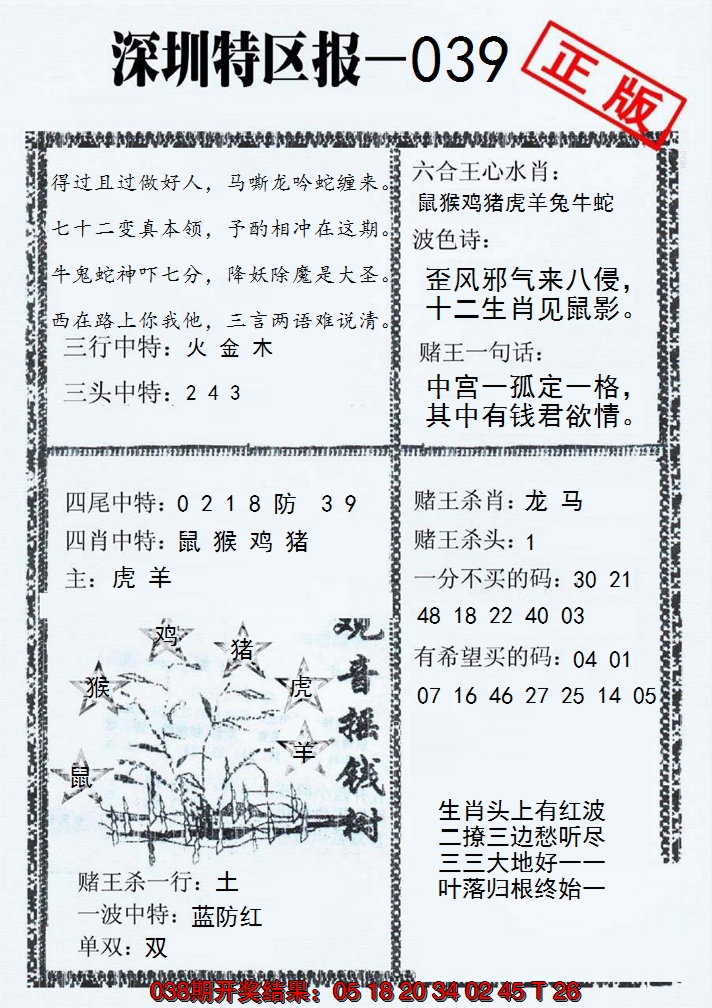 深圳特区报—039
正版
得过且过做好人，马嘶龙吟蛇缠来。
七十二变真本领，予酌相冲在这期。
牛鬼蛇神吓七分，降妖除魔是大圣。
西在路上你我他，三言两语难说清。
三行中特：火 金 木
三头中特：2 4 3
六合王心水肖：
鼠猴鸡猪虎羊兔牛蛇
波色诗：
歪风邪气来八侵，
十二生肖见鼠影。
赌王一句话：
中宫一孤定一格，
其中有钱君欲情。
四尾中特：0 2 1 8 防 3 9
四肖中特：鼠 猴 鸡 猪
主：虎 羊
鸡
猪
猴
虎
羊
鼠
观音摇钱树
赌王杀一行：土
一波中特：蓝防红
单双：双
赌王杀肖：龙 马
赌王杀头：1
一分不买的码：30 21
48 18 22 40 03
有希望买的码：04 01
07 16 46 27 25 14 05
生肖头上有红波
二撩三边愁听尽
三三大地好一一
叶落归根终始一
038期开奖结果：05 18 20 34 02 45 T 26